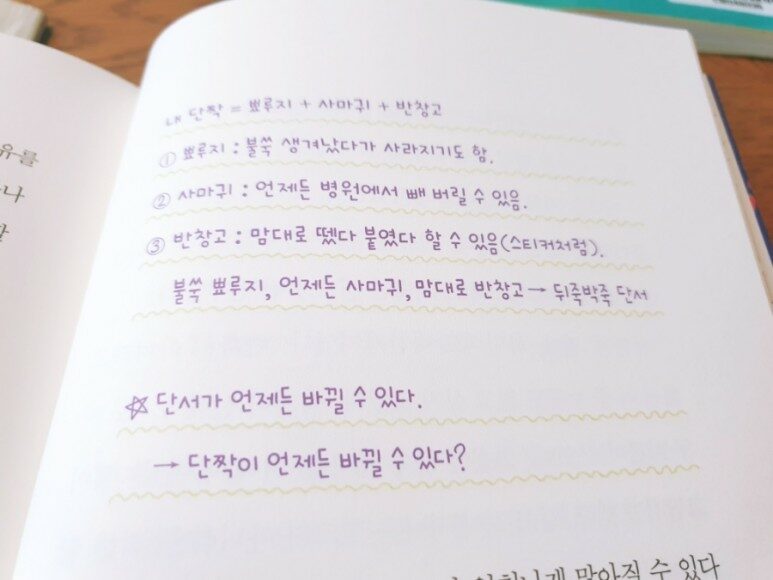 유를
나
내 단짝 = 뾰루지 + 사마귀 + 반창고
① 뾰루지 : 불쑥 생겨났다가 사라지기도 함.
② 사마귀 : 언제든 병원에서 빼 버릴 수 있음.
③ 반창고 : 맘대로 뗐다 붙였다 할 수 있음(스티커처럼).
불쑥 뾰루지, 언제든 사마귀, 맘대로 반창고 → 뒤죽박죽 단서
☆ 단서가 언제든 바뀔 수 있다.
→ 단짝이 언제든 바뀔 수 있다?
맑아질 수 있다